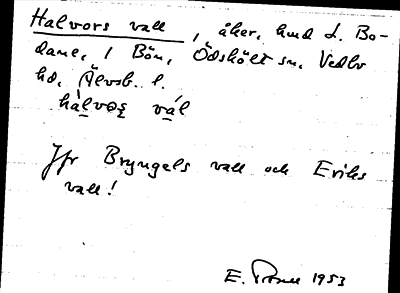 Halvors vall, åker, hmd t. Bo-
dane, 1 Bön, Ödskölt sn, Vedbo
hd, Älvsb. l.
hàlvoș vál
Jfr Bryngels vall och Eriks
vall!
E. 1953